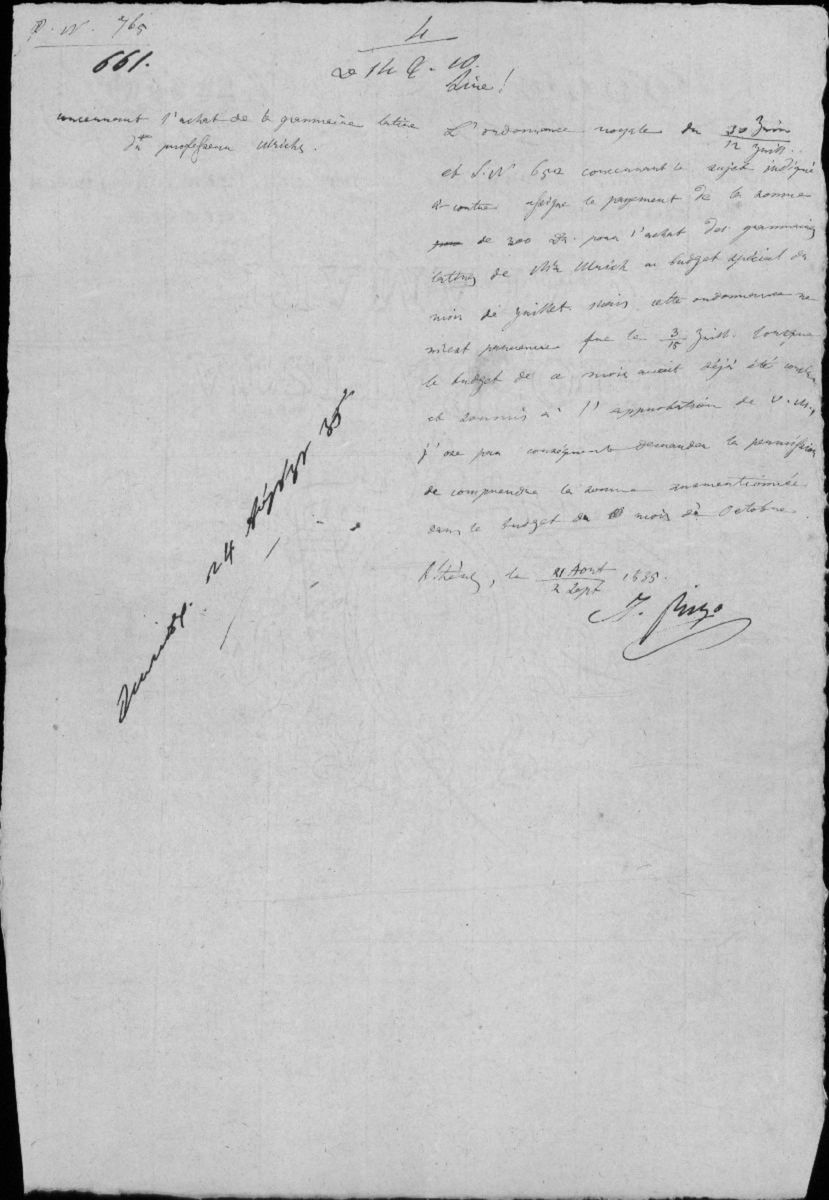 P. N. 765
661.
4
Sire!
concernant l'achat de la grammaire latine
du professeur Ulrichs.
L'ordonnance royale du 30 Juin / 12 Juill.
et S. N. 6512 concernant le sujet indiqué
ci contre assigne le payement de la somme
de 300 Dr. pour l'achat des grammaires
latines de Mr. Ulrich au budget spécial du
mois de Juillet. Mais cette ordonnance ne
m'est parvenue que le 3/15 Juill. lorsque
le budget de ce mois avait déjà été conclu
et soumis à l'approbation de V. M.,
j'ose par conséquent demander la permission
de comprendre la somme susmentionnée
dans le budget du mois de Octobre.
Athènes, le 21 Aout / 2 Sept 1835.
J. Rizo
24 Αὐγούστου 35